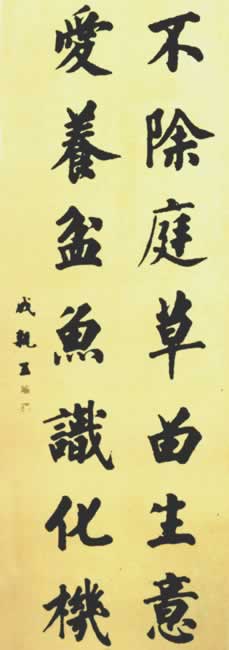 不除庭草畄生意
愛養盆魚識化機
成親王